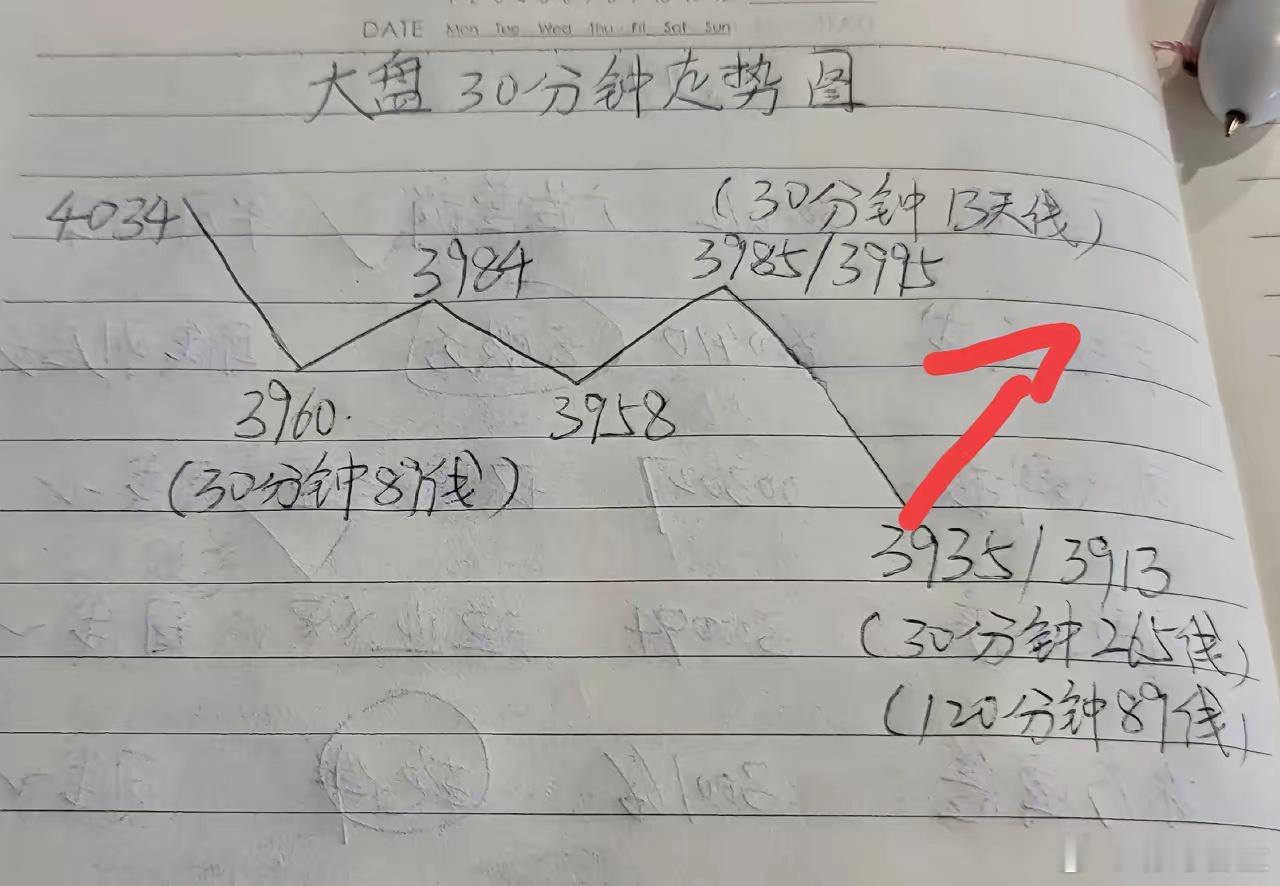 DATE Mon Tue Wed Thu Fri Sat Sun
大盘30分钟走势图
4034
(30分钟13天线)
3984
3985/3995
3960.
3958
(30分钟89线)
3935/3913
(30分钟265线)
(120分钟89线)